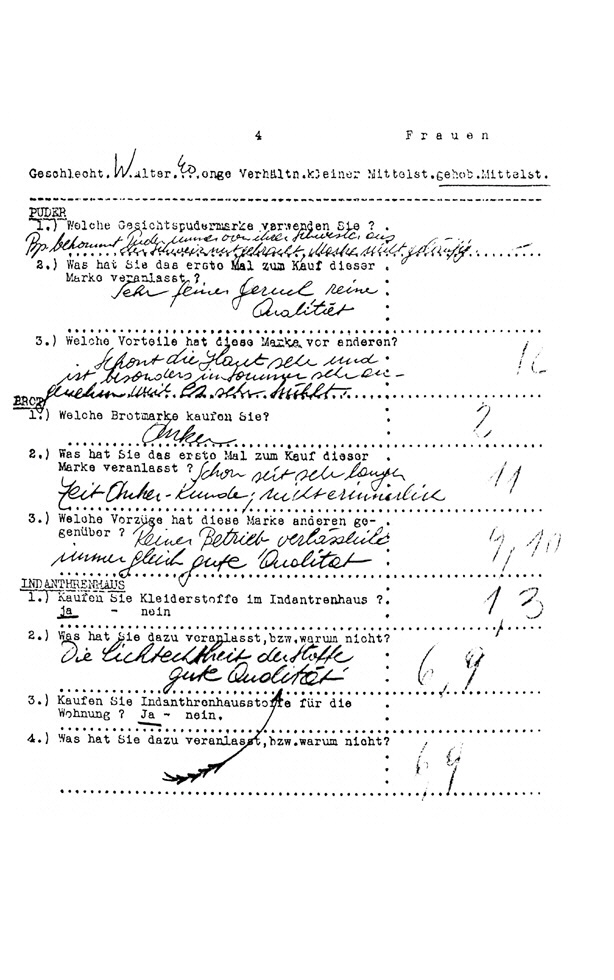 4 Frauen
Geschlecht. W. Alter. 40. onge Verhältn. kleiner Mittelst. gehob. Mittelst.
PUDER
1.) Welche Gesichtspudermarke verwenden Sie ?
Pp. bekommt Puder immer von ihrer Schwester aus
der Schweiz mitgebracht, Marke nicht geläufig –
2.) Was hat Sie das erste Mal zum Kauf dieser
Marke veranlasst ?
Sehr feiner Geruch reine
Qualität
3.) Welche Vorteile hat diese Marke vor anderen?
Schont die Haut sehr und
ist besonders im Sommer sehr an-
genehm weil es sehr kühlt. 12
BROT
1.) Welche Brotmarke kaufen Sie?
Anker 2
2.) Was hat Sie das erste Mal zum Kauf dieser
Marke veranlasst ? Schon seit sehr langer
Zeit Anker-Kunde, nicht erinnerlich 11
3.) Welche Vorzüge hat diese Marke anderen ge-
genüber ? Reiner Betrieb verlässlich
immer gleich gute Qualität 4, 10
INDANTHRENHAUS
1.) Kaufen Sie Kleiderstoffe im Indantrenhaus ?
ja - nein 1, 3
2.) Was hat Sie dazu veranlasst,bzw.warum nicht?
Die Lichtechtheit der Stoffe
gute Qualität 6, 9
3.) Kaufen Sie Indanthrenhausstoffe für die
Wohnung ? Ja - nein.
4.) Was hat Sie dazu veranlasst,bzw.warum nicht?
6, 9